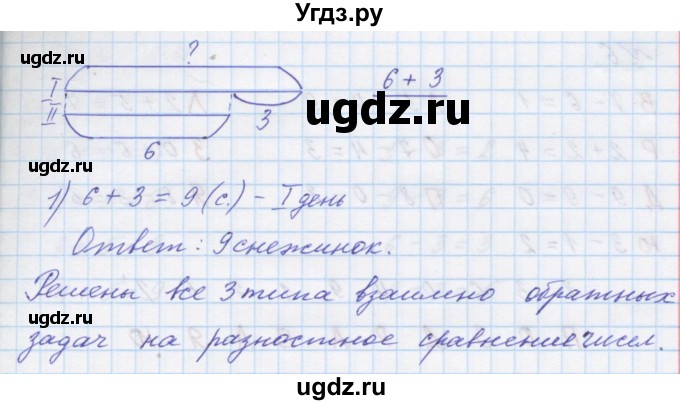 Угдз.ру
ugdz.ru ? ugdz.ru
I 6 + 3
II 3
6
ugdz.ru
1) 6 + 3 = 9 (с.) – I день
Ответ: 9 снежинок.
ugdz.ru ugdz.ru
Решены все 3 типа взаимно обратных
задач на разностное сравнение чисел.
ugdz.ru ugdz.ru
Угдз.ру